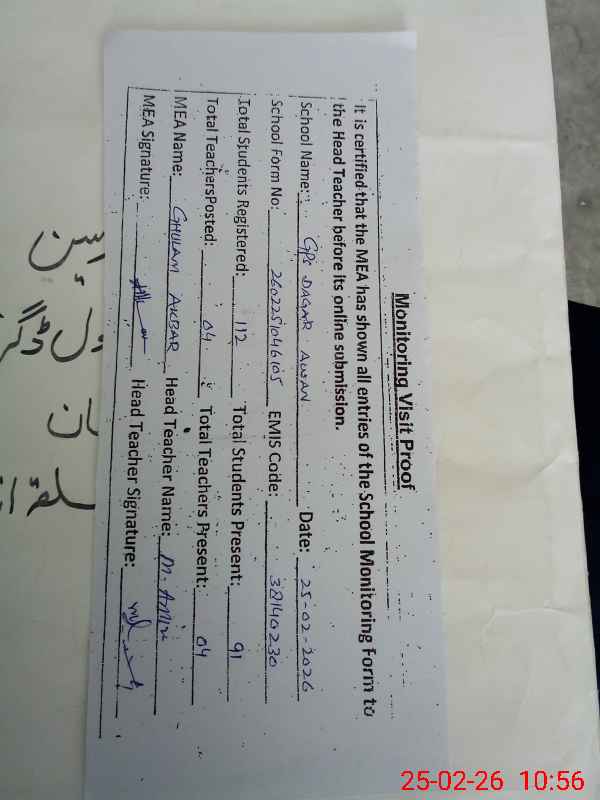 Monitoring Visit Proof
It is certified that the MEA has shown all entries of the School Monitoring Form to
the Head Teacher before its online submission.
School Name: GPS DAGAR AWAN Date: 25-02-2026
School Form No: 2602251046105 EMIS Code: 38140230
Total Students Registered: 112 Total Students Present: 91
Total TeachersPosted: 04 Total Teachers Present: 04
MEA Name: GHULAM AKBAR Head Teacher Name: M. Amin
MEA Signature: Head Teacher Signature:
25-02-26 10:56